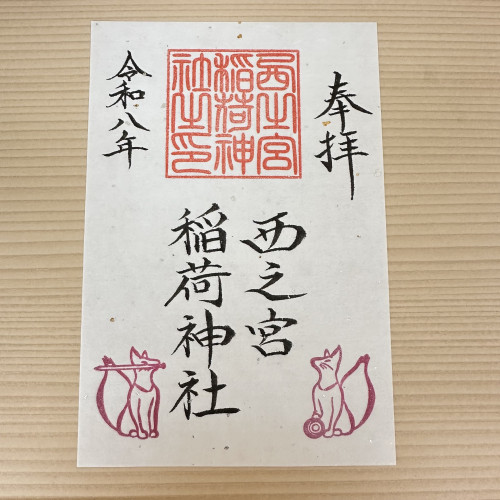 奉拝
西之宮
稲荷神社
令和八年
西之宮
稲荷神
社之印